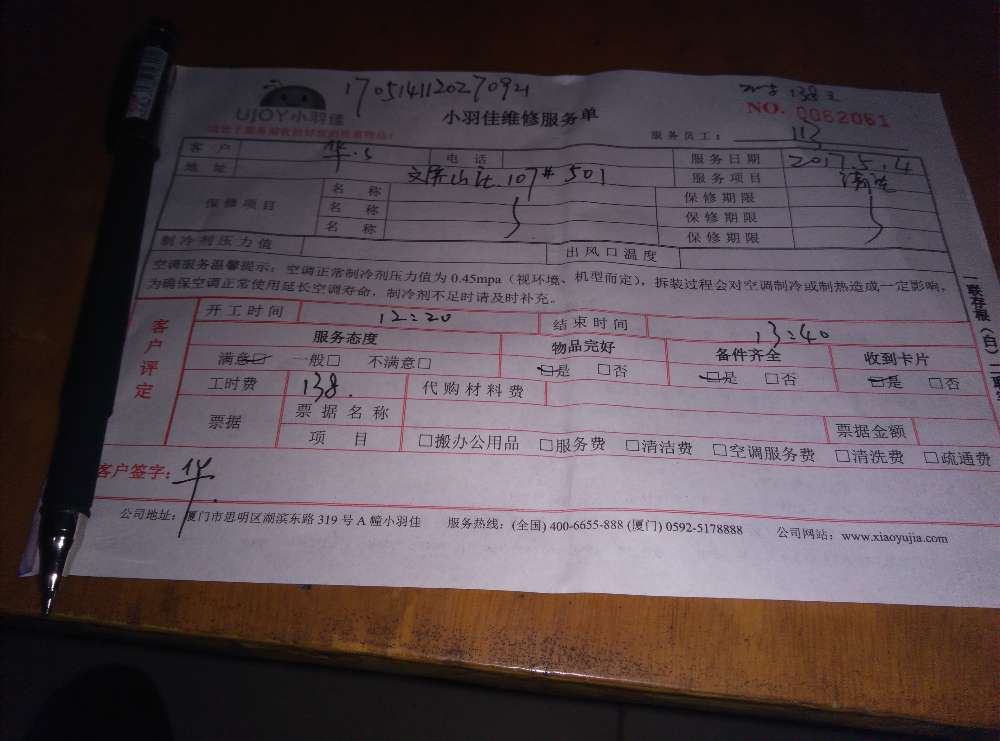 1705141120270921
138元
UJOY小羽佳
小羽佳维修服务单
NO. 0062061
服务员工: 113
客 户 华 电 话 服务日期 2017.5.4
地 址 文屏山社 107# 501 服务项目 清洗
保修项目 名 称 保修期限
名 称 保修期限
名 称 保修期限
制冷剂压力值 出风口温度
空调服务温馨提示：空调正常制冷剂压力值为 0.45mpa（视环境、机型而定），拆装过程会对空调制冷或制热造成一定影响，
为确保空调正常使用延长空调寿命，制冷剂不足时请及时补充。
客户评定
开工时间 12:20 结束时间 13:40
服务态度 物品完好 备件齐全 收到卡片
满意☑ 一般□ 不满意□ ☑是 □否 ☑是 □否 ☑是 □否
工时费 138. 代购材料费
票据 票 据 名 称 票据金额
项 目 □搬办公用品 □服务费 □清洁费 □空调服务费 □清洗费 □疏通费
客户签字: 华
公司地址: 厦门市思明区湖滨东路 319 号 A 幢小羽佳 服务热线: (全国) 400-6655-888 (厦门) 0592-5178888 公司网站: www.xiaoyujia.com
一联存根（白）二联